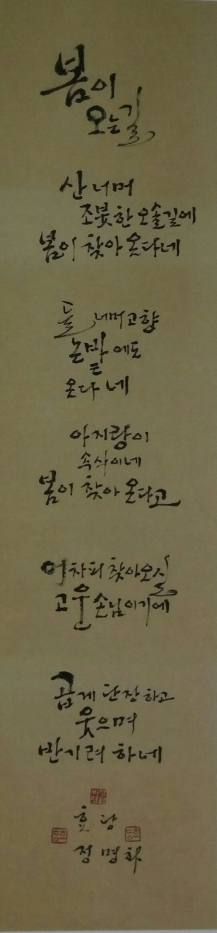 봄이
오는길
산 너머
조붓한 오솔길에
봄이 찾아 온다네
들 너머 고향
논밭에도
온다네
아지랑이
속삭이네
봄이 찾아 온다고
어차피 찾아오실
고운 손님이기에
곱게 단장하고
웃으며
반기려 하네
효당
정명화